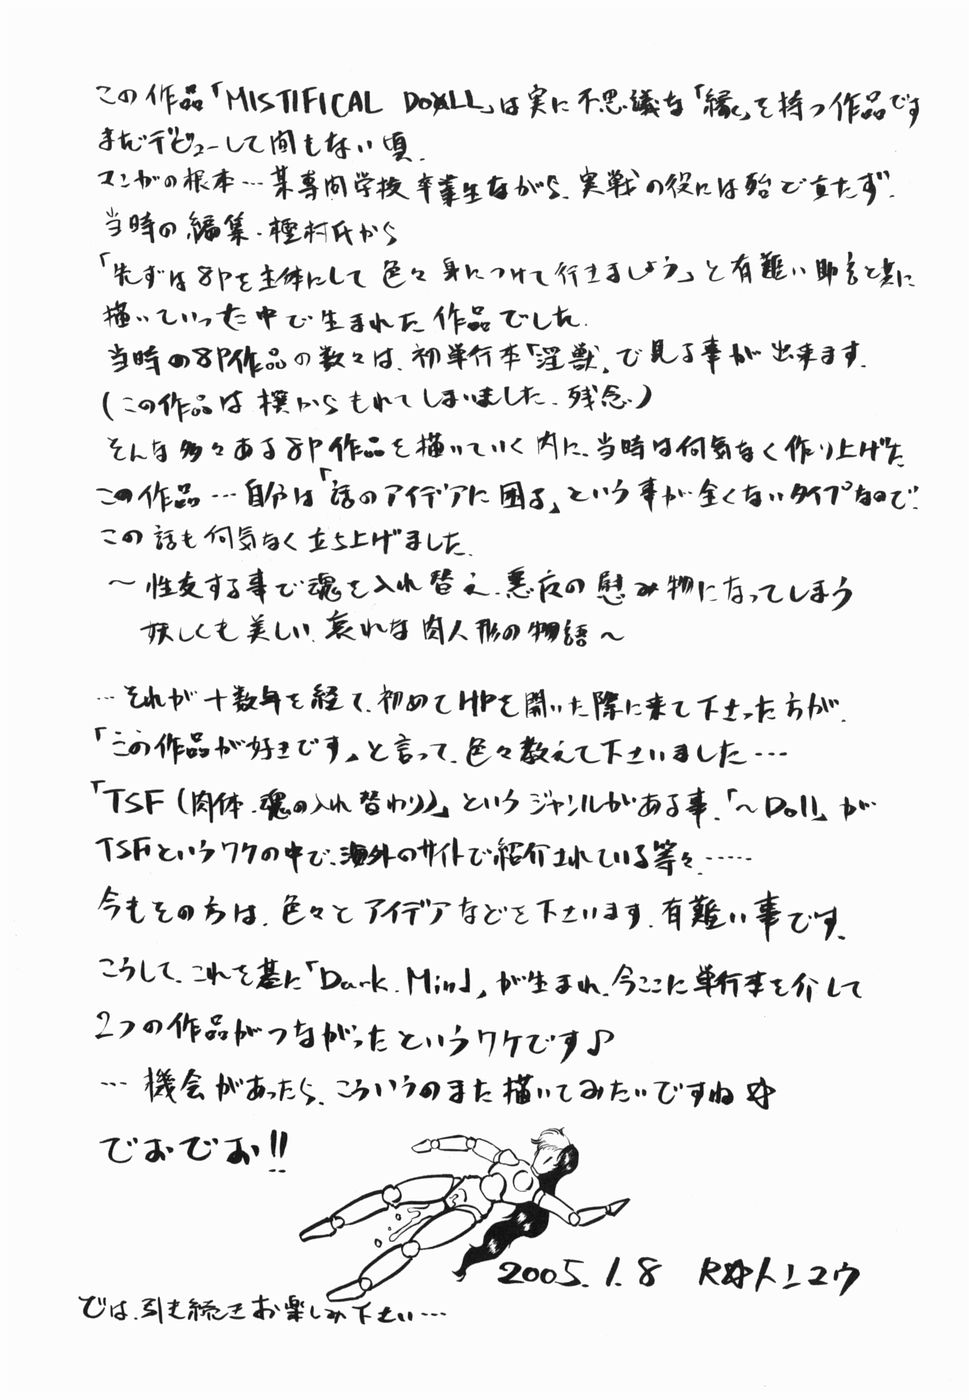 この作品「MISTIFICAL DOLL」は実に不思議な「縁」を持つ作品です
まだデビューして間もない頃.
マンガの根本…某専門学校卒業生ながら、実戦の役には殆ど立たず.
当時の編集・種村氏から
「先ずは8Pを主体にして色々身につけて行きましょう」と有難い助言と共に
描いていった中で生まれた作品でした.
当時の8P作品の数々は、初単行本「淫獣」で見る事が出来ます.
(この作品は撰からもれてしまいました、残念)
そんな多々ある8P作品を描いていく内に、当時は何気なく作り上げた
この作品…自分は「話のアイデアに困る」という事が全くないタイプなので、
この話も何気なく立ち上げました.
〜性交する事で魂を入れ替え、悪店の慰み物になってしまう
妖しくも美しい、哀れな肉人形の物語〜
…それが十数年を経て、初めてHPを開いた際に来て下さった方が、
「この作品が好きです」と言って、色々教えて下さいました…
「TSF(肉体・魂の入れ替わり)」というジャンルがある事、「〜Doll」が
TSFというワケの中で、海外のサイトで紹介されている等々……
今もその方は、色々とアイデアなどを下さいます.有難い事です、
こうして、これを基に「Dark.Mind」が生まれ、今ここに単行本を介して
2つの作品がつながったというワケです♪
…機会があったら、こういうのまた描いてみたいですね☆
でおでお!!
2005.1.8
では、引き続きお楽しみ下さい…